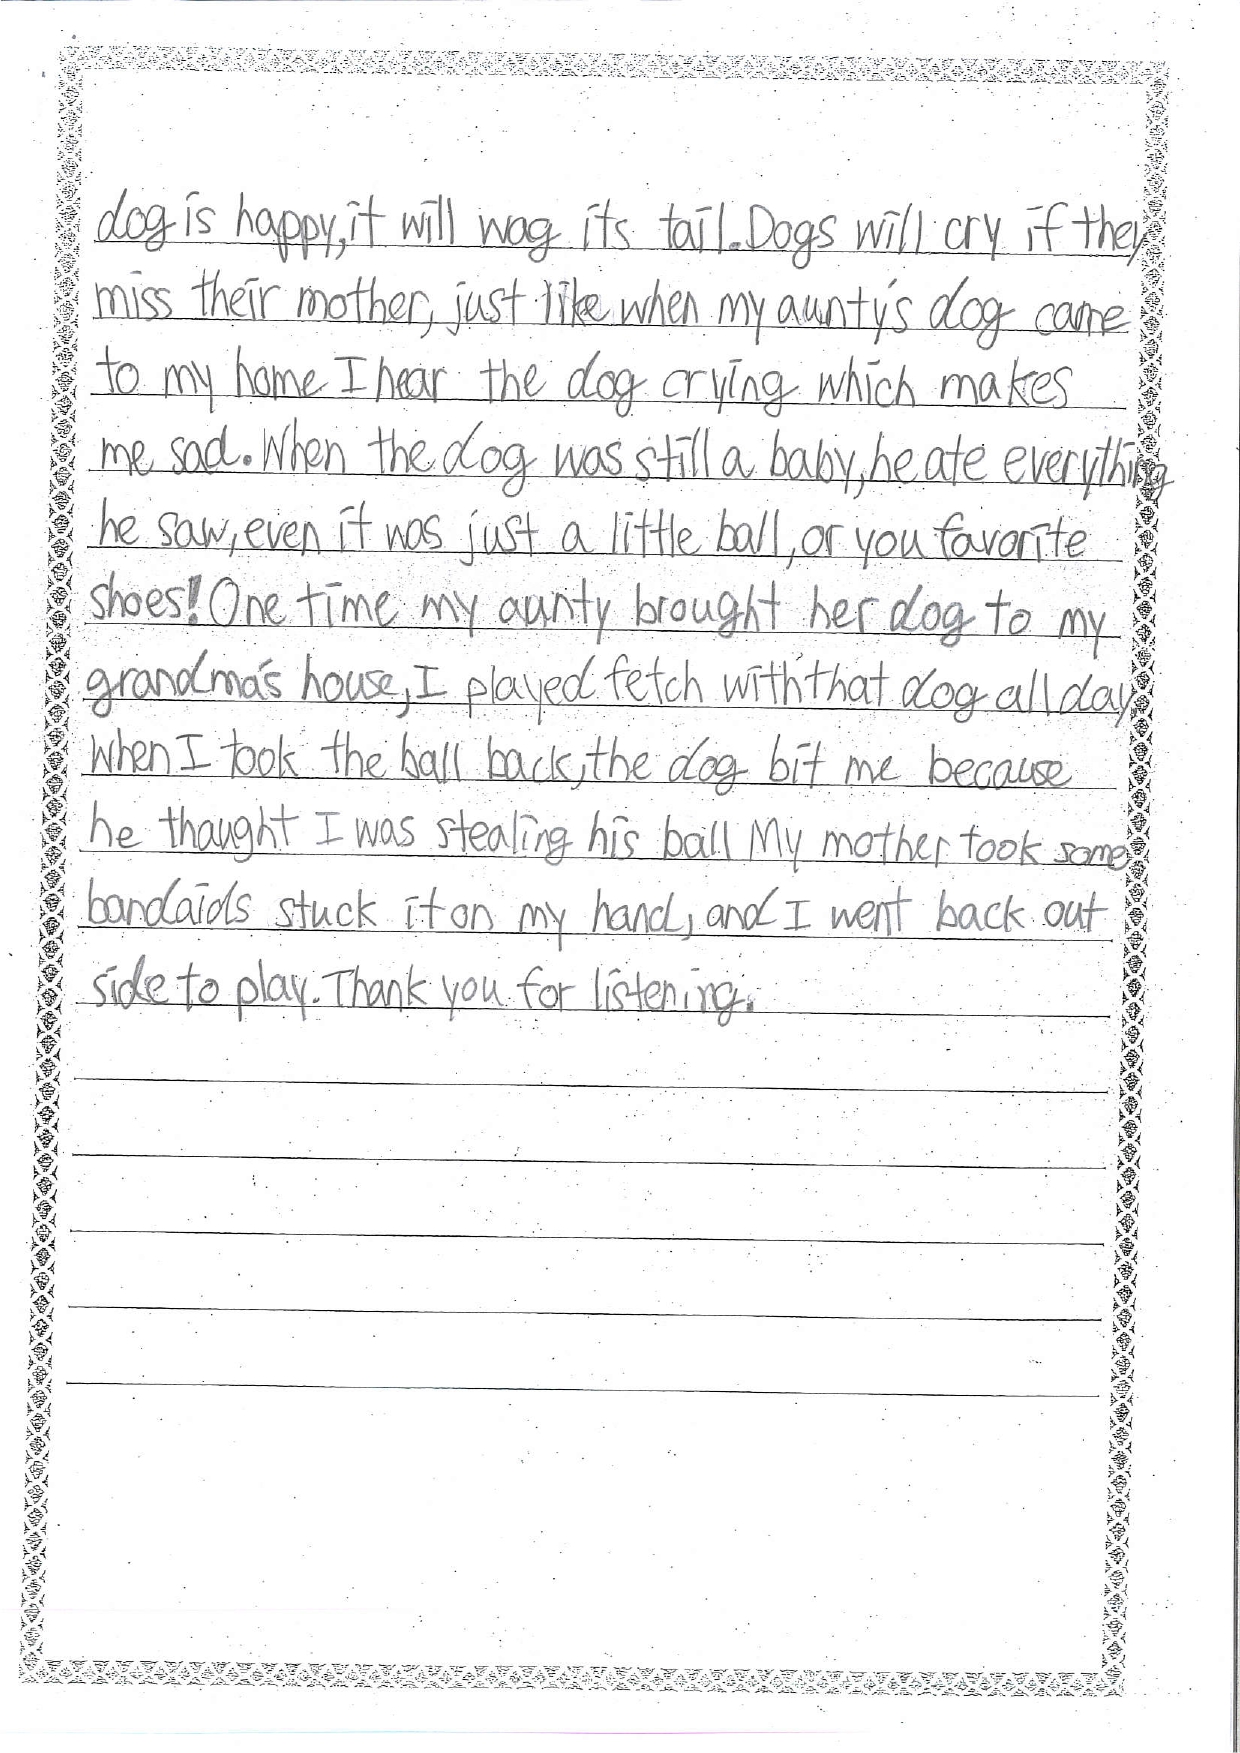 dog is happy, it will wag its tail. Dogs will cry if they
miss their mother, just like when my aunty's dog came
to my home I hear the dog crying which makes
me sad. When the dog was still a baby, he ate everything
he saw, even it was just a little ball, or you favorite
shoes! One time my aunty brought her dog to my
grandma's house, I played fetch with that dog all day.
When I took the ball back, the dog bit me because
he thaught I was stealing his ball My mother took some
bandaids stuck it on my hand, and I went back out
side to play. Thank you for listening.